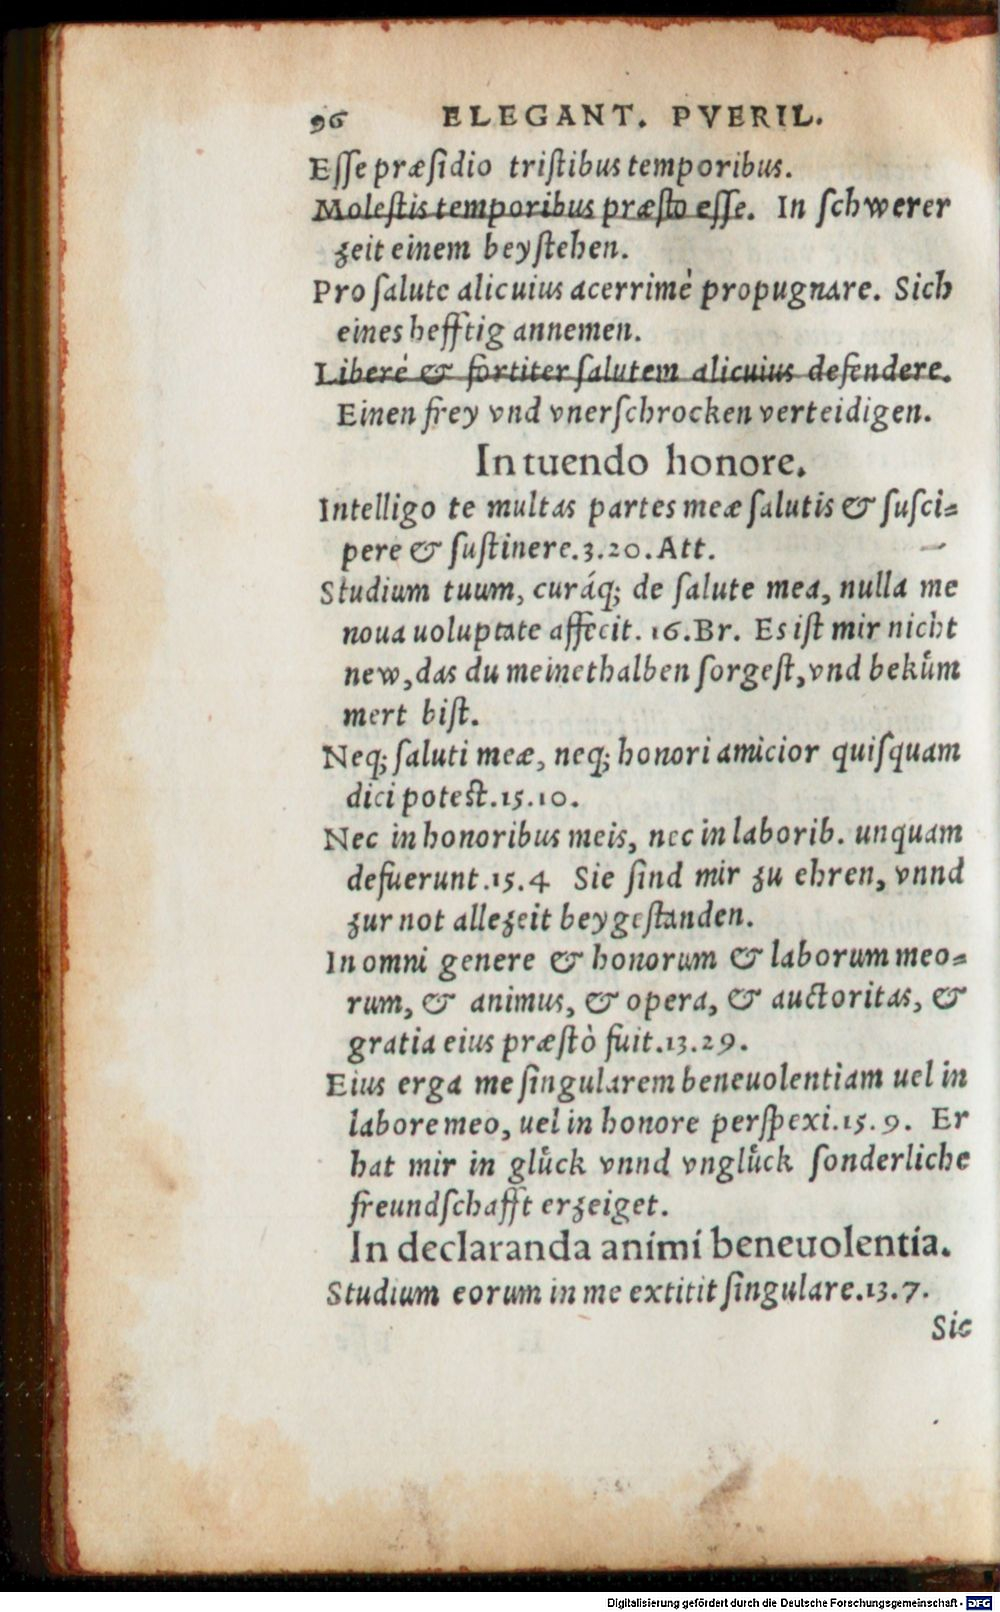 96 ELEGANT. PVERIL.
Esse præsidio tristibus temporibus.
Molestis temporibus præsto esse. In schwerer
zeit einem beystehen.
Pro salute alicuius acerrimè propugnare. Sich
eines hefftig annemen.
Liberè & fortiter salutem alicuius defendere.
Einen frey vnd vnerschrocken verteidigen.
In tuendo honore.
Intelligo te multas partes meæ salutis & susci=
pere & sustinere.3.20.Att.
Studium tuum, curáq; de salute mea, nulla me
noua uoluptate affecit. 16.Br. Es ist mir nicht
new, das du meinethalben sorgest, vnd bekům
mert bist.
Neq; saluti meæ, neq; honori amicior quisquam
dici potest.15.10.
Nec in honoribus meis, nec in laborib. unquam
defuerunt.15.4 Sie sind mir zu ehren, vnnd
zur not allezeit beygestanden.
In omni genere & honorum & laborum meo=
rum, & animus, & opera, & auctoritas, &
gratia eius præstò fuit.13.29.
Eius erga me singularem beneuolentiam uel in
labore meo, uel in honore perspexi.15.9. Er
hat mir in glůck vnnd vnglůck sonderliche
freundschafft erzeiget.
In declaranda animi beneuolentia.
Studium eorum in me extitit singulare.13.7.
Sic
Digitalisierung gefördert durch die Deutsche Forschungsgemeinschaft - DFG